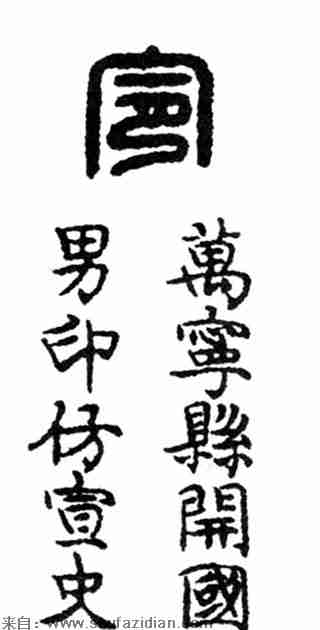 寧
萬寧縣開國
男印仿宣史
来自：www.shufazidian.com